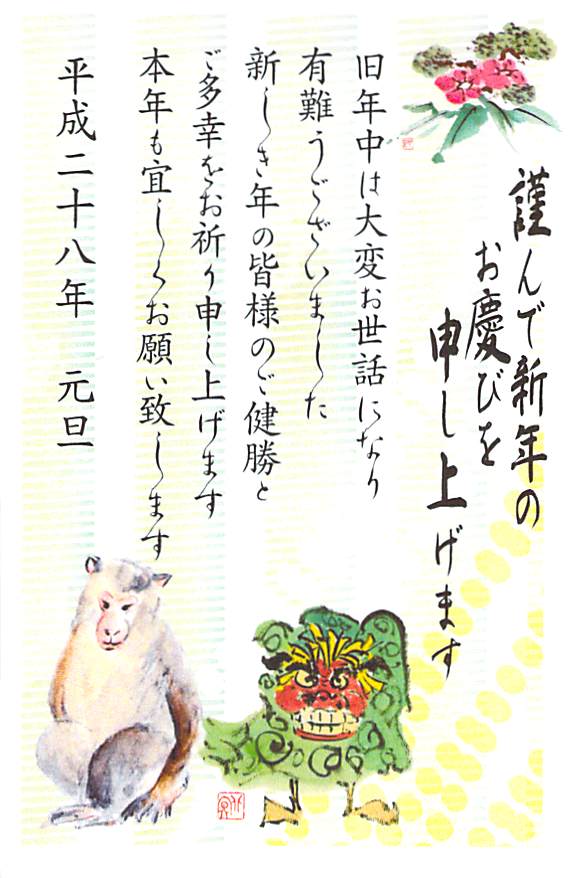 謹んで新年の
お慶びを
申し上げます
旧年中は大変お世話になり
有難うございました
新しき年の皆様のご健勝と
ご多幸をお祈り申し上げます
本年も宜しくお願い致します
平成二十八年 元旦